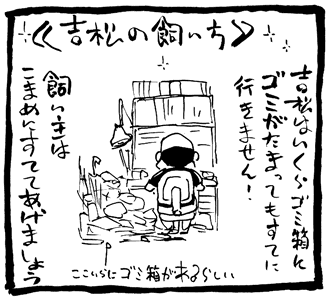 吉松の飼いち
吉松はいくらゴミ箱に
ゴミがたまってもすてに
行きません！
飼い主は
こまめにすててあげましょう
ここいらにゴミ箱があるらしい